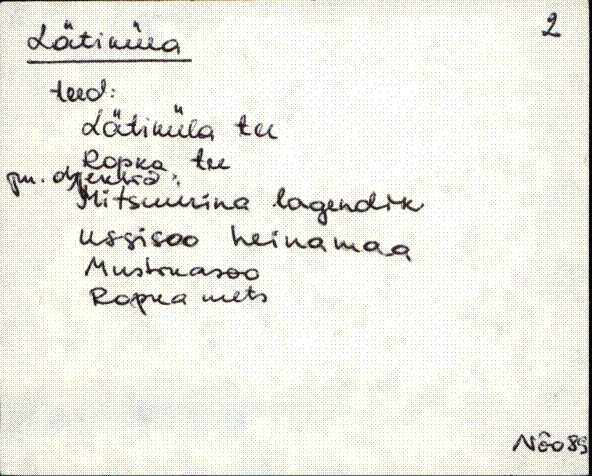 2
Lätiküla
teed:
Lätiküla tee
Ropka tee
pn. objektid:
Mitsuurina lagendik
Ussisoo heinamaa
Mustikasoo
Ropka mets
Nõo 89